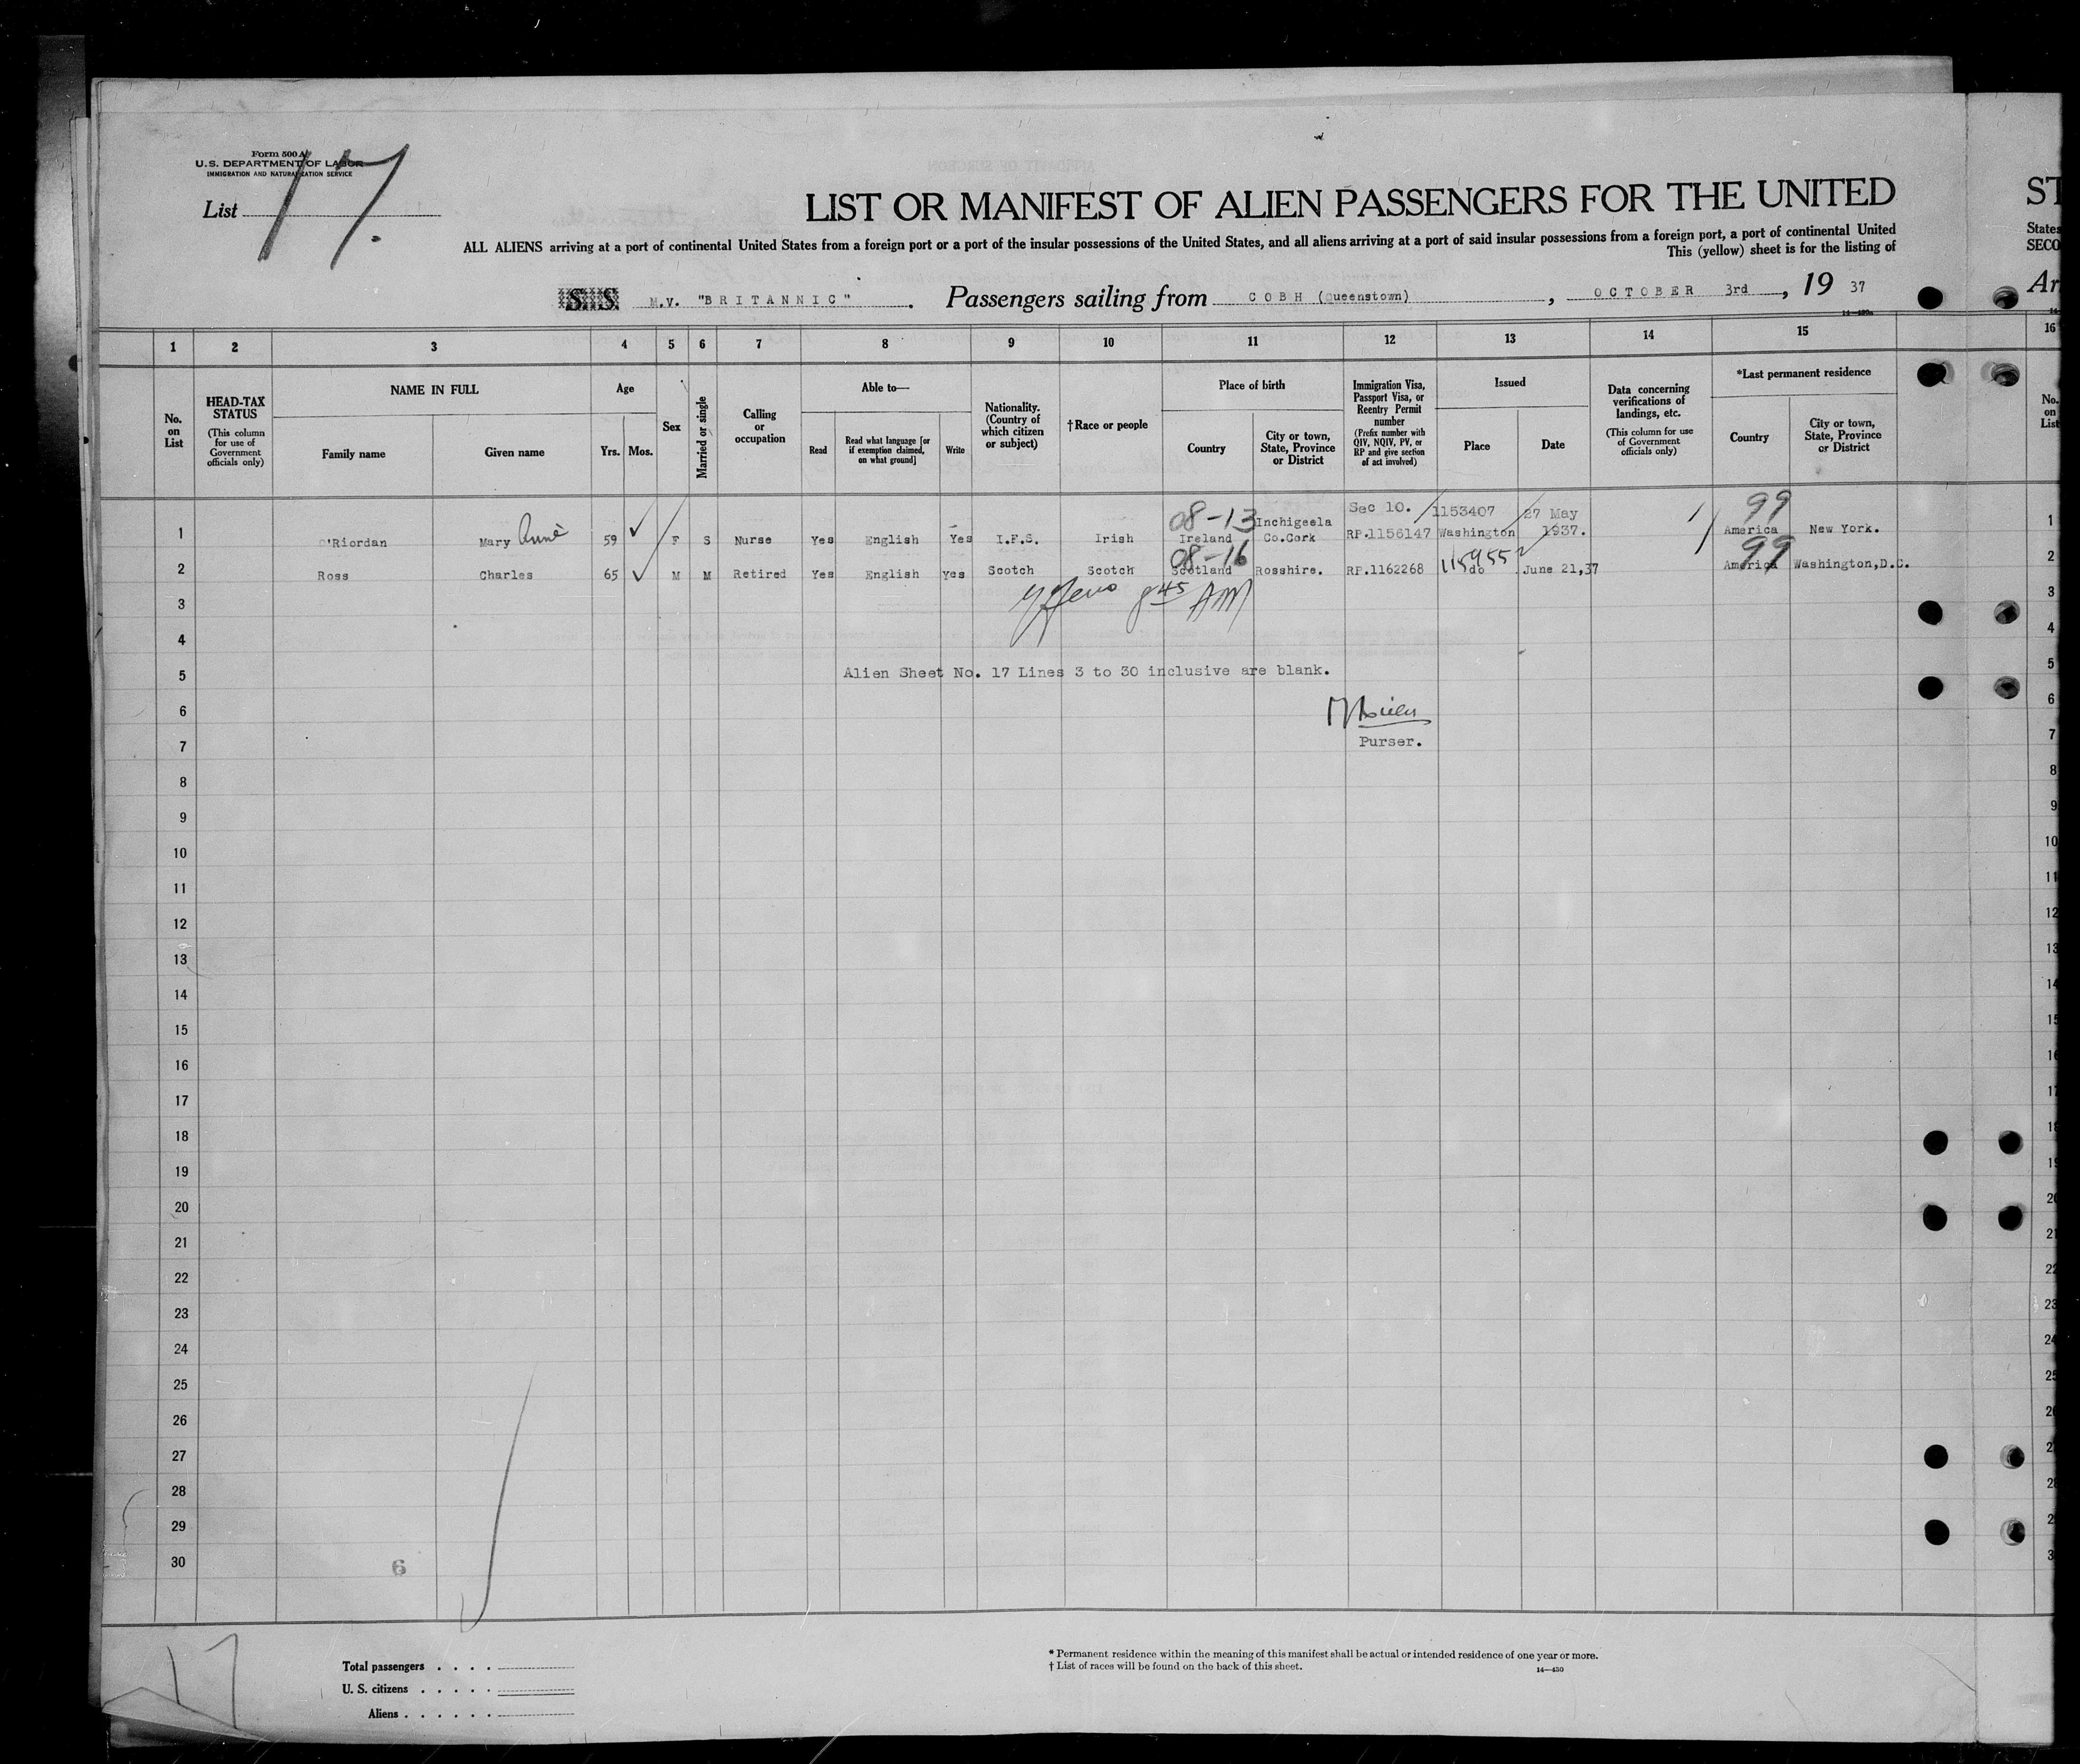 Form 500 A
U.S. DEPARTMENT OF LABOR
IMMIGRATION AND NATURALIZATION SERVICE
List 17.
LIST OR MANIFEST OF ALIEN PASSENGERS FOR THE UNITED
ST
ALL ALIENS arriving at a port of continental United States from a foreign port or a port of the insular possessions of the United States, and all aliens arriving at a port of said insular possessions from a foreign port, a port of continental United
States
This (yellow) sheet is for the listing of
SECO
S. S. M.V. "BRITANNIC". Passengers sailing from COBH (Queenstown), OCTOBER 3rd, 19 37
Ar
1 2 3 4 5 6 7 8 9 10 11 12 13 14 15 16
No. on List
HEAD-TAX STATUS
(This column for use of Government officials only)
NAME IN FULL
Family name
Given name
Age
Yrs. Mos.
Sex
Married or single
Calling or occupation
Able to—
Read
Read what language [or if exemption claimed, on what ground]
Write
Nationality. (Country of which citizen or subject)
†Race or people
Place of birth
Country
City or town, State, Province or District
Immigration Visa, Passport Visa, or Reentry Permit number
(Prefix number with QIV, NQIV, PV, or RP and give section of act involved)
Issued
Place
Date
Data concerning verifications of landings, etc.
(This column for use of Government officials only)
*Last permanent residence
Country
City or town, State, Province or District
No. on List
08-13 Inchigeela Sec 10. 1153407 27 May 99
1 O'Riordan Mary Anne 59 F S Nurse Yes English Yes I.F.S. Irish Ireland Co.Cork RP.1156147 Washington 1937. America New York. 1
08-16 115955 99
2 Ross Charles 65 M M Retired Yes English Yes Scotch Scotch Scotland Rosshire. RP.1162268 do June 21,37 America Washington,D.C. 2
3 8 45 AM 3
4 4
5 Alien Sheet No. 17 Lines 3 to 30 inclusive are blank. 5
6 6
7 Purser. 7
8 8
9 9
10 10
11 11
12 12
13 13
14 14
15 15
16 16
17 17
18 18
19 19
20 20
21 21
22 22
23 23
24 24
25 25
26 26
27 2
28 28
29 2
30 6 3
17
Total passengers . . . .
U. S. citizens . . . . .
Aliens . . . . . .
* Permanent residence within the meaning of this manifest shall be actual or intended residence of one year or more.
† List of races will be found on the back of this sheet.
14—430